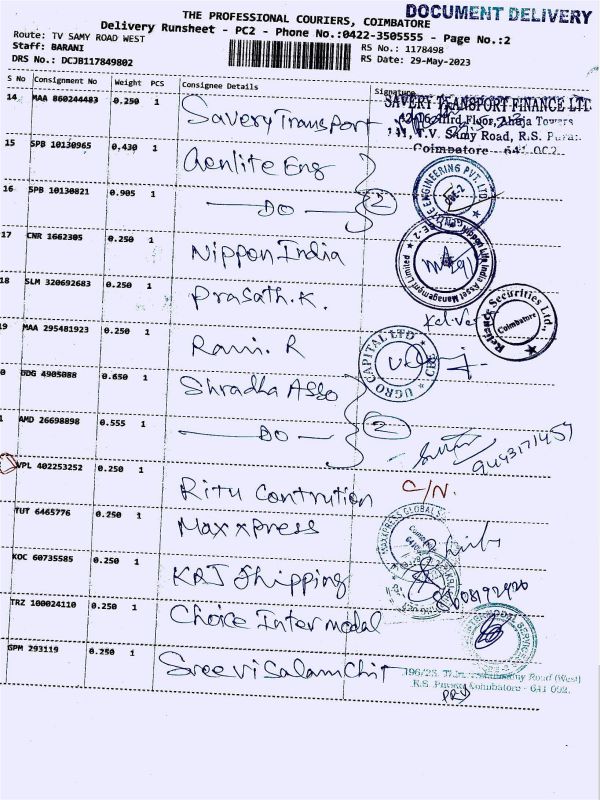 DOCUMENT DELIVERY
THE PROFESSIONAL COURIERS, COIMBATORE
Delivery Runsheet - PC2 - Phone No.:0422-3505555 - Page No.:2
Route: TV SAMY ROAD WEST
RS No.: 1178498
Staff: BARANI
RS Date: 29-May-2023
DRS No.: DCJB117849802
S No Consignment No Weight PCS Consignee Details Signature
14 MAA 860244483 0.250 1 Savery Transport
SAVERY TRANSPORT FINANCE LTD
Third Floor, Ahuja Towers
T.V. Samy Road, R.S. Puram
Coimbatore - 641 002.
15 SPB 10130965 0.430 1 Genlite Eng
16 SPB 10130821 0.905 1 DO 2
ENGINEERING PVT. LTD.
17 CNR 1662305 0.250 1 Nippon India
Nippon Life India Asset Management Limited
18 SLM 320692683 0.250 1 Prasath.K.
Reliance Securities Ltd.,
Coimbatore
9 MAA 295481923 0.250 1 Rani. R
UGRO CAPITAL LTD
0 DDG 4905088 0.650 1 Shradha Asso
1 AMD 26698898 0.555 1 DO 2
9443171457
VPL 402253252 0.250 1 Ritu Contrution C/N.
TUT 6465776 0.250 1 Maxxpress
MAXXPRESS GLOBAL
KOC 60735585 0.250 1 KRJ Shipping
TRZ 100024110 0.250 1 Choice Intermodal
GPM 293119 0.250 1 Sreevisalamchit
Road (West)
R.S. Puram, Coimbatore - 641 002.